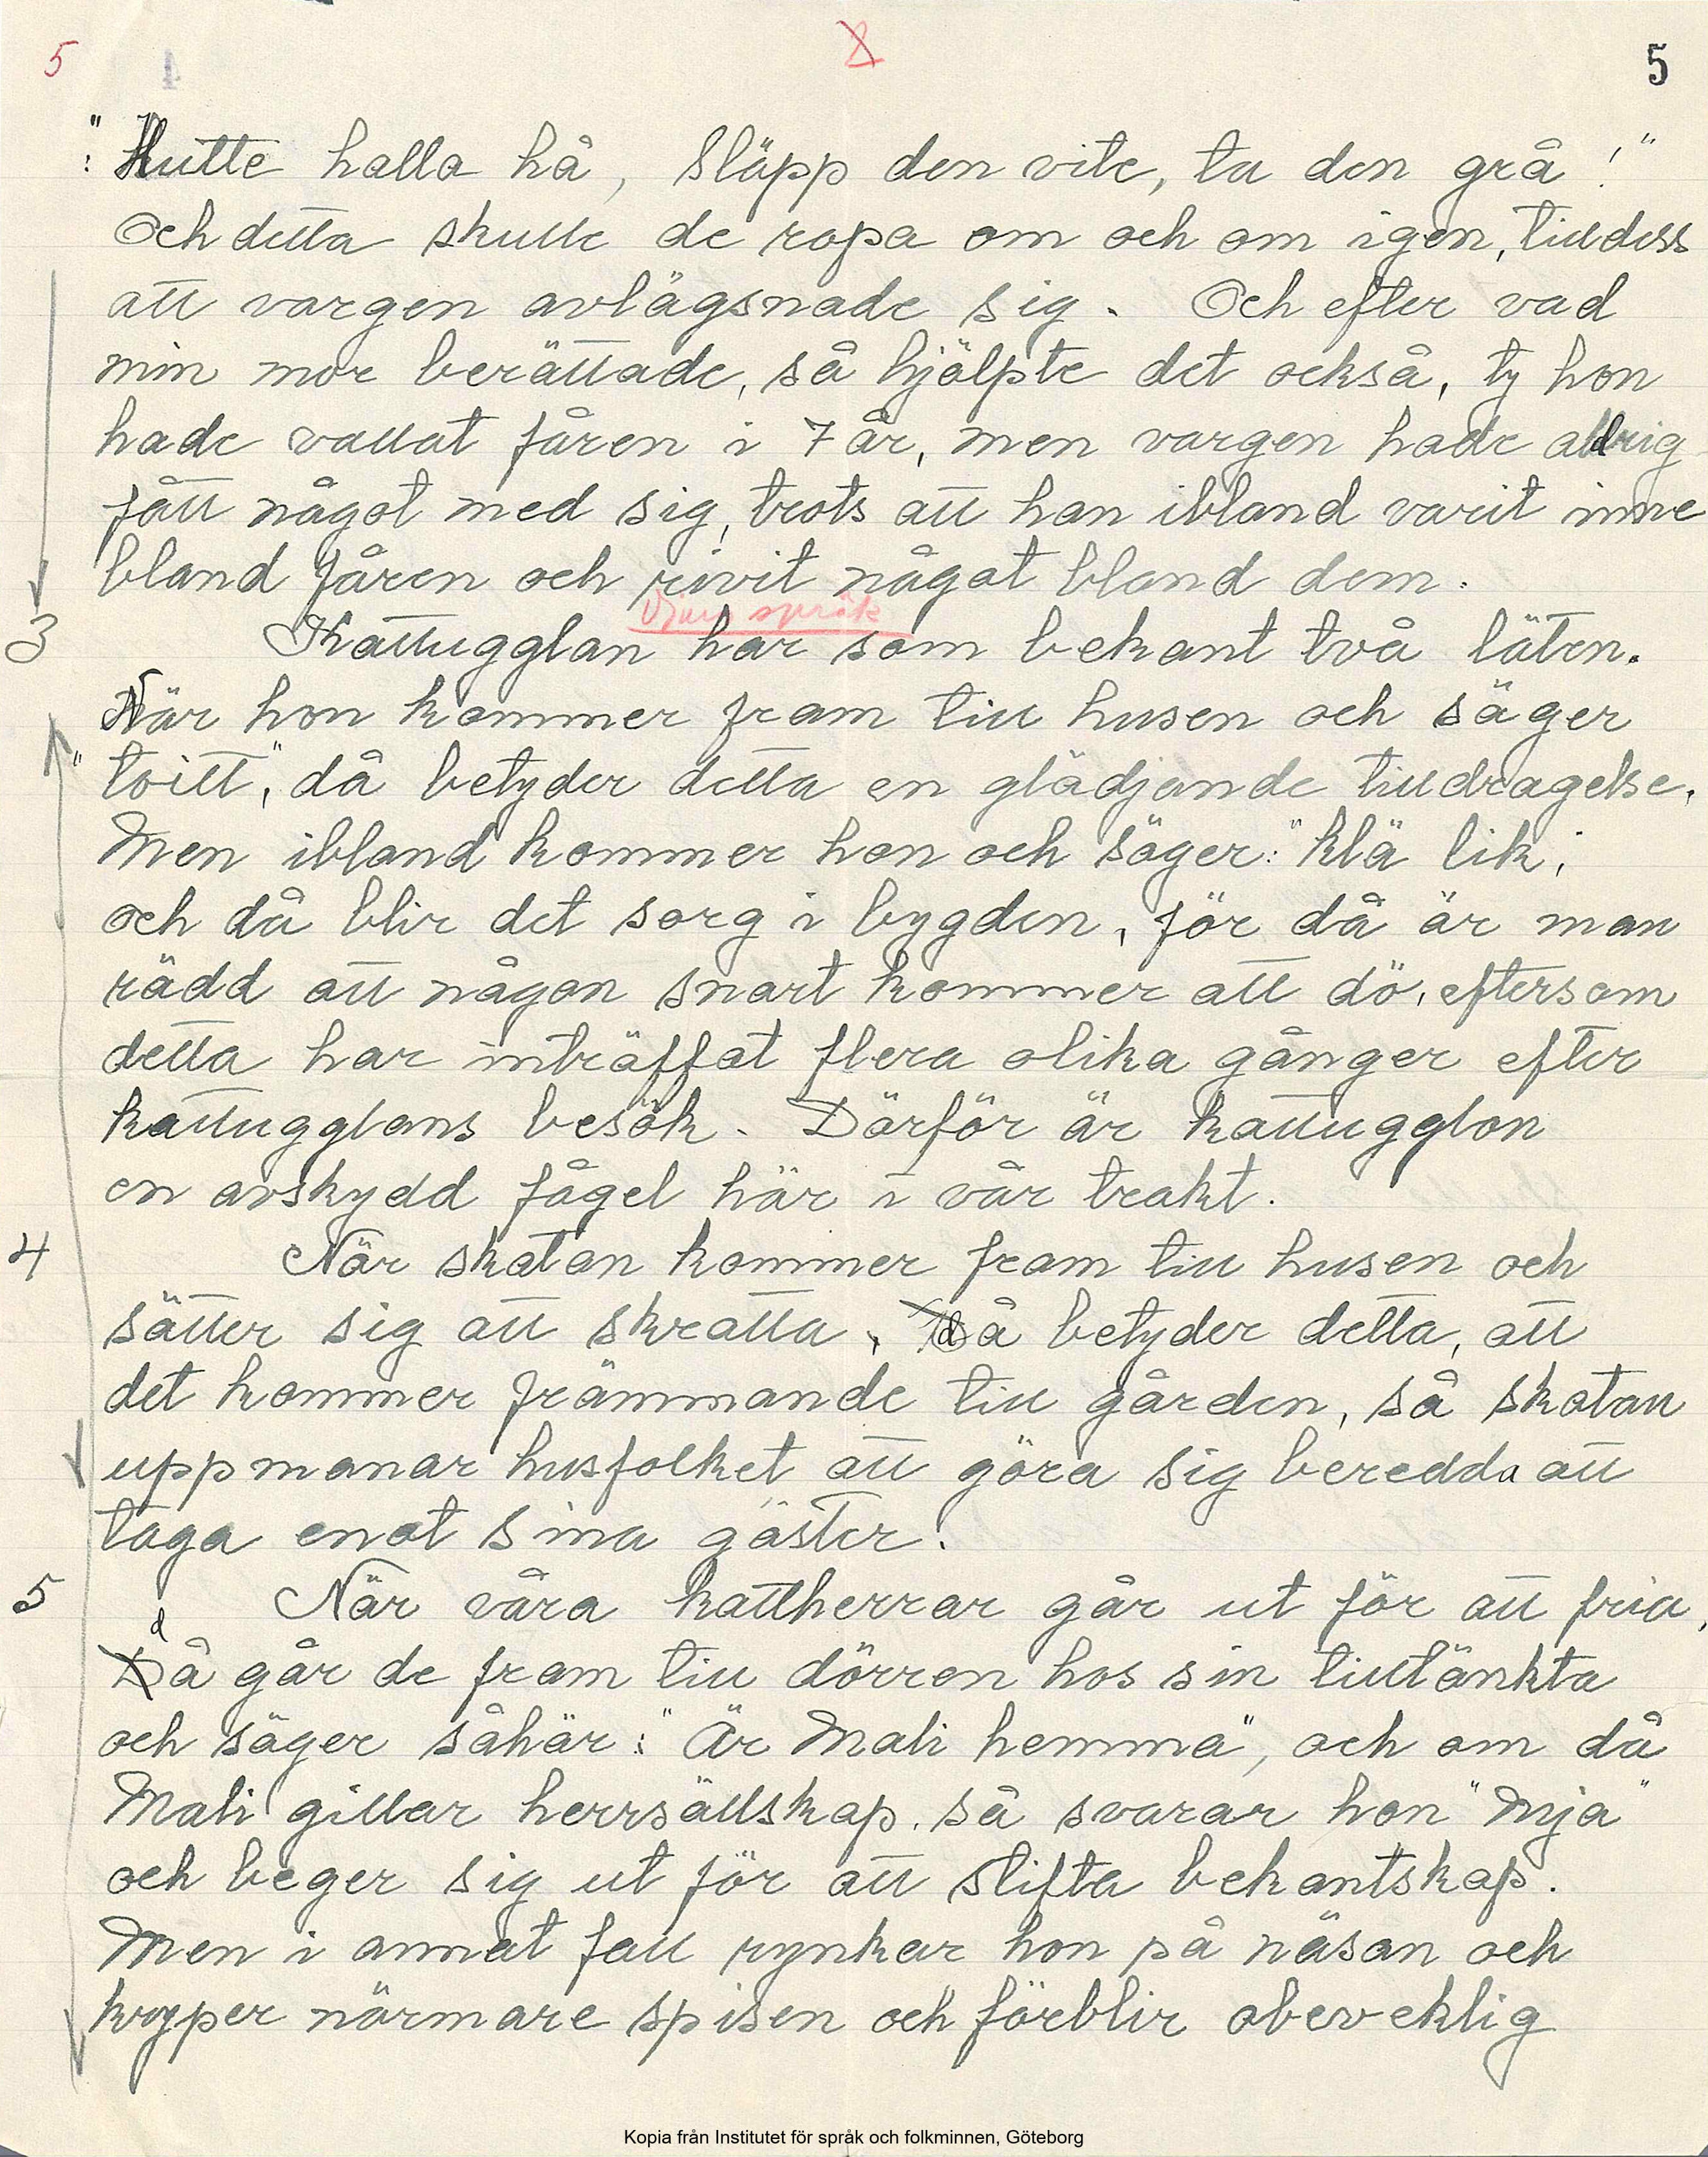 5 8 5
: "Hutte halla hå, Släpp den vite, ta den grå!"
Och detta skulle de ropa om och om igen, tilldess
att vargen avlägsnade sig. Och efter vad
min mor berättade, så hjälpte det också, ty hon
hade vallat fåren i 7 år, men vargen hade aldrig
fått något med sig, trots att han ibland varit inne
bland fåren och rivit något bland dem.
språk
3 Kattugglan har som bekant två läten.
När hon kommer fram till husen och säger
"toitt", då betyder detta en glädjande tilldragelse.
Men ibland kommer hon och säger: "klä lik,
och då blir det sorg i bygden, för då är man
rädd att någon snart kommer att dö, eftersom
detta har inträffat flera olika gånger efter
kattugglans besök. Därför är kattugglan
en avskydd fågel här i vår trakt.
4 När skatan kommer fram till husen och
sätter sig att skratta, då betyder detta, att
det kommer främmande till gården, så skatan
uppmanar husfolket att göra sig beredda att
taga emot sina gäster.
5 När våra kattherrar går ut för att fria,
då går de fram till dörren hos sin tilltänkta
och säger såhär: "Är Mali hemma", och om då
Mali gillar herrsällskap, så svarar hon "Mja"
och beger sig ut för att stifta bekantskap.
Men i annat fall rynkar hon på näsan och
kryper närmare spisen och förblir obeveklig
Kopia från Institutet för språk och folkminnen, Göteborg